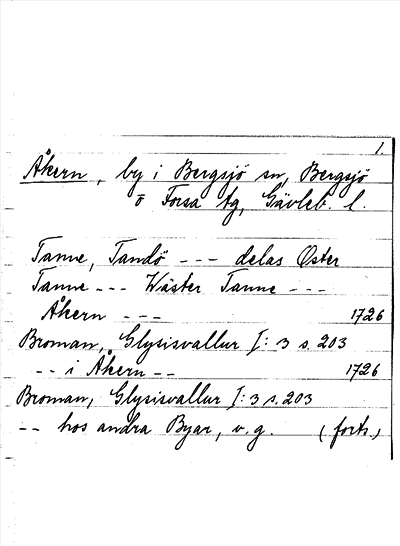 1.
Åkern, by i Bergsjö sn, Bergsjö
o Forsa tg, Gävleb. l.
Tanne, Tandö --- delas Öster
Tanne --- Wäster Tanne ---
Åkern --- 1726
Broman, Glysisvallur I:3 s. 203
-- i Åkern -- 1726
Broman, Glysisvallur I:3 s. 203
-- hos andra Byar, v.g. (forts.)